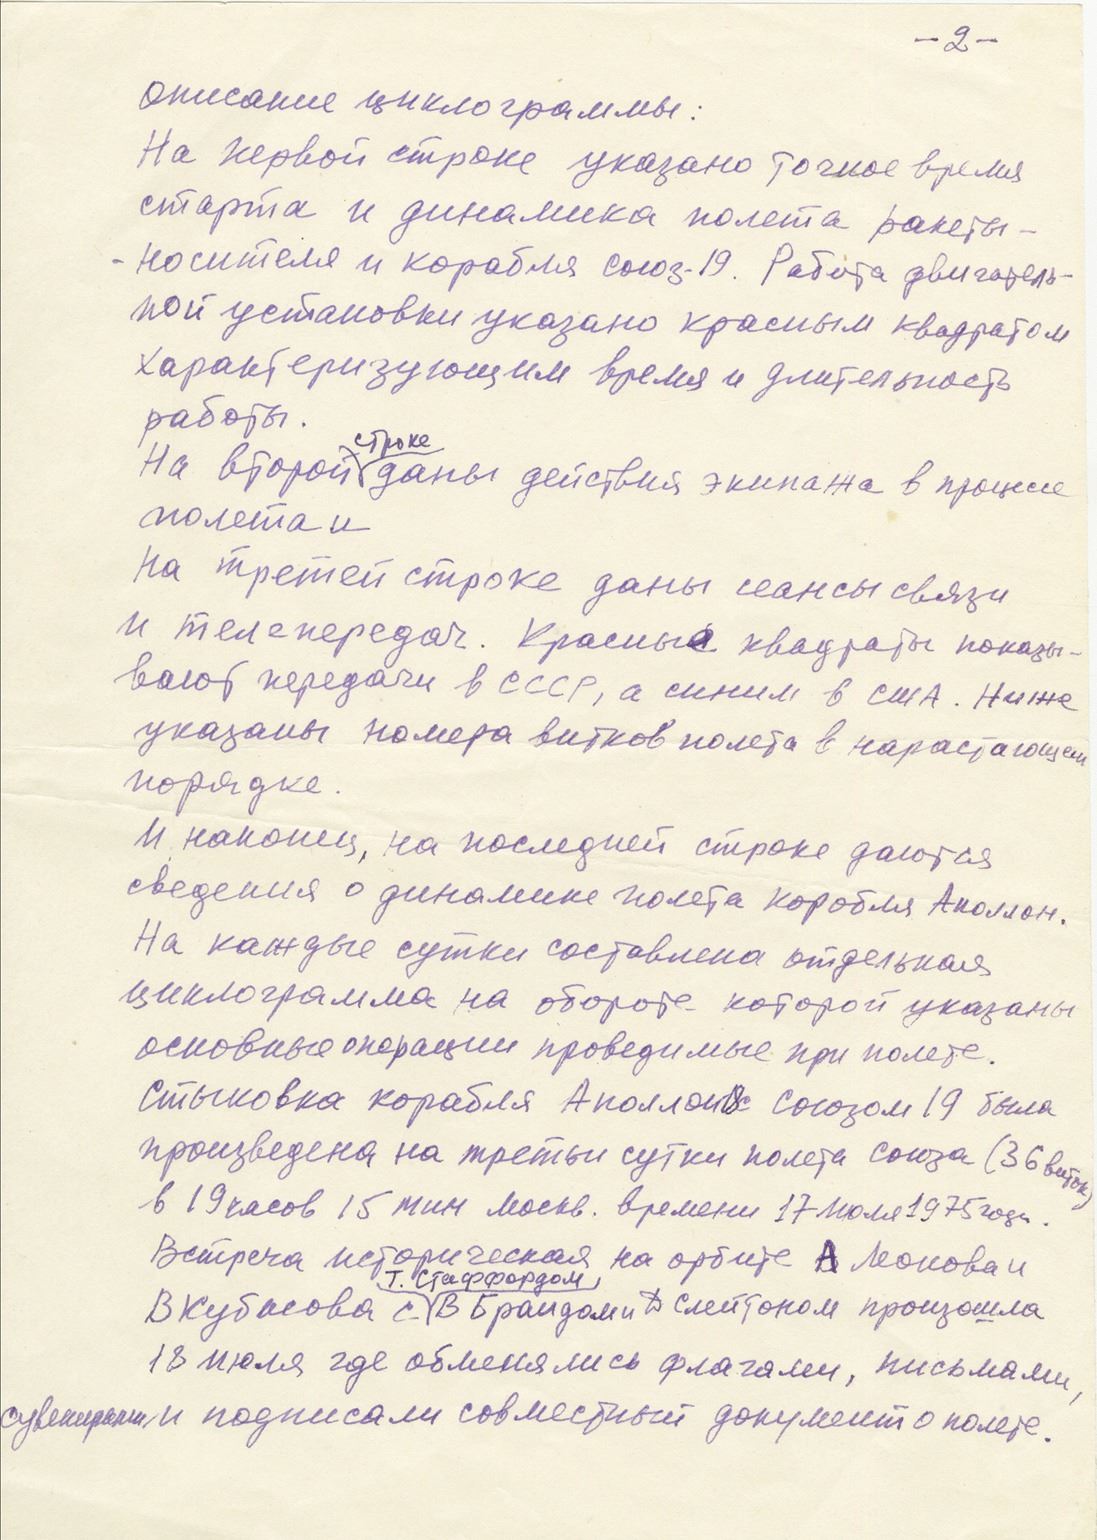 -2-
Описание циклограммы:
На первой строке указано точное время
старта и динамика полета ракеты-
-носителя и корабля Союз-19. Работа двигатель-
ной установки указано красным квадратом
характеризующим время и длительность
работы.
строке
На второй даны действия экипажа в процессе
полета и
На третей строке даны сеансы связи
и телепередач. Красные квадраты показы-
вают передачи в СССР, а синим в США. Ниже
указаны номера витков полета в нарастающем
порядке.
И наконец, на последней строке даются
сведения о динамике полета коробля Аполлон.
На каждые сутки составлена отдельная
циклограмма на обороте которой указаны
основные операции проведимые при полете.
Стыковка корабля Аполлон с Союзом 19 была
произведена на третьи сутки полета Союза (36 виток)
в 19 часов 15 мин Москв. времени 17 июля 1975 года.
Встреча историческая на орбите А Леонова и
Т. Стаффордом,
В Кубасова с В Брандом и Д Слейтоном произошла
18 июля где обменялись флагами, письмами,
сувенирами и подписали совместный документ о полете.